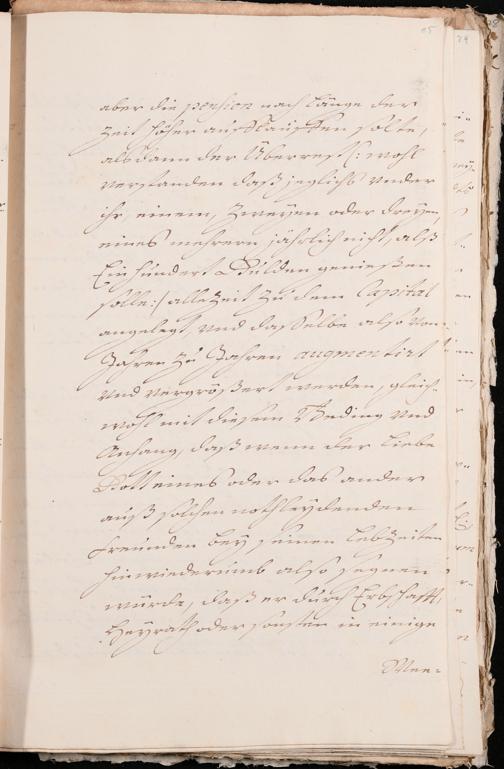 aber die pension nach länge der
Zeit höher aufflauffen solte,
alsdann der Überrest (: wohl
verstanden daß jeglichs vnder
ihr, einem, Zweyen oder dreyen
eines mehrern jährlich nicht, alß
Ein hundert Gulden genießen
solle :/ allezeit zu dem Capital
angelegt, vnd dasselbe also von
Jahren zu Jahren augmentirt
vnd vergrößert werden, gleich-
wohl mit diesem Beding vnd
Anhang, daß wenn der liebe
Gott eines oder das ander
auß solchen nothleydenden
freunden bey seinen lebzeiten
hinwiederumb also segnen
würde, daß er durch Erbschafft,
Heyrath oder sonsten in einige